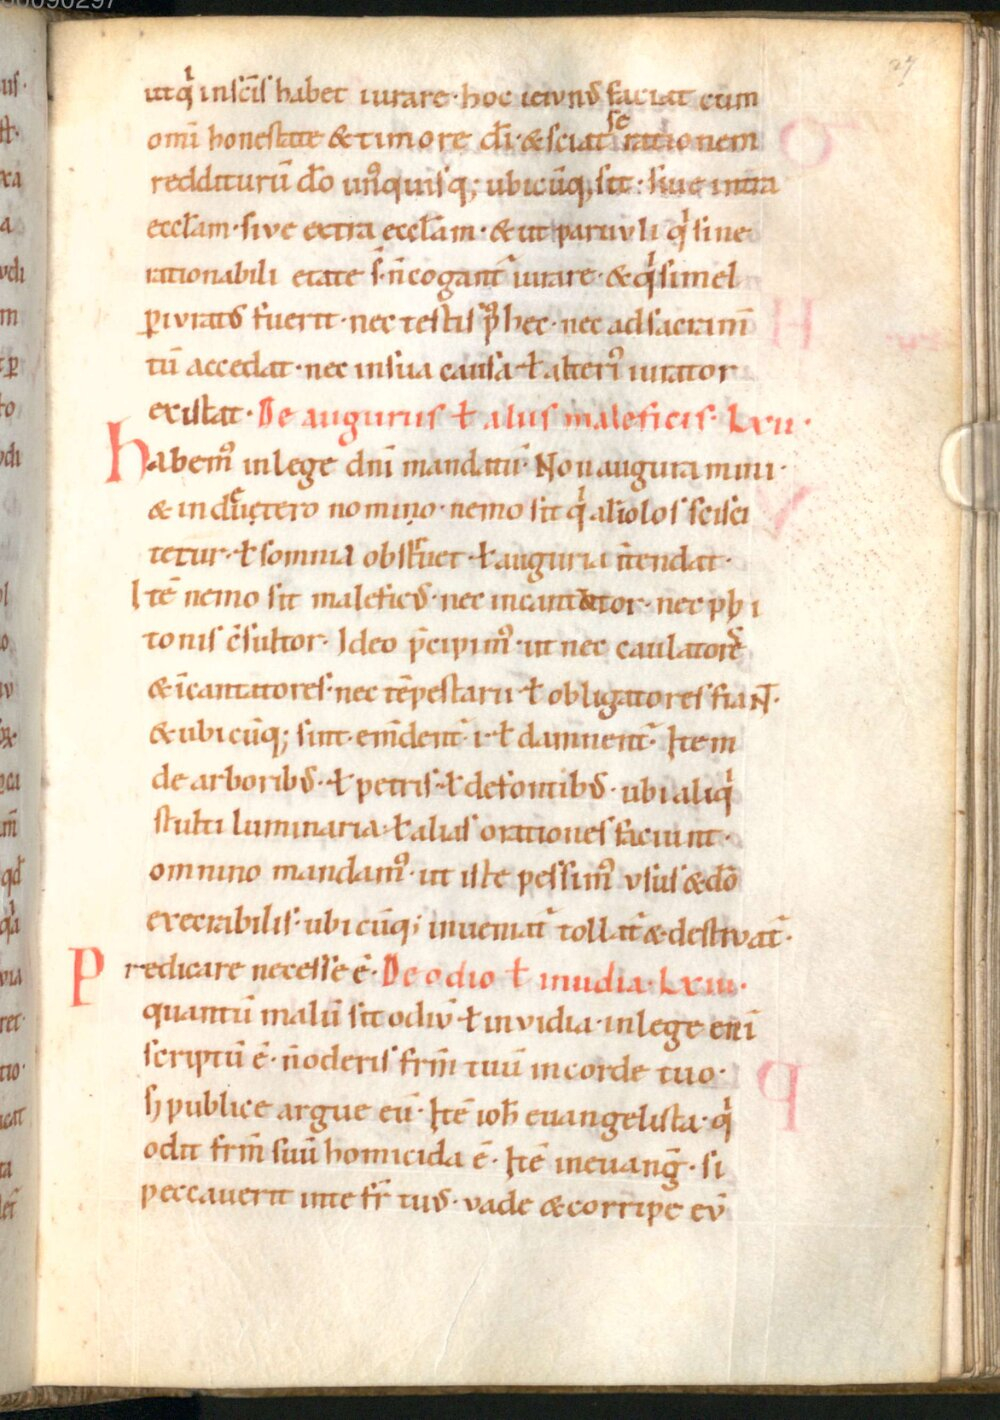 utqͥ in sc̄is habet iurare· hoc ieiunꝰ faciat cum
om̄i honestate & timore d̄i· & sciat se rationem
redditurū d̄o unꝰquisq; ubicūq; sit· sive intra
eccl̄am· sive extra eccl̄am· & ut parvuli qͥ sine
rationabili etate s̄· n̄ cogant᷑ iurare· & qͥ simel
ꝑiuratꝰ fuerit· nec testis sit p̄ꝰ hec· nec ad sacram̄
tū accedat· nec in sua causa ł alteriꝰ iurator
existat· De auguriis ł aliis maleficis· Lxii·
Habemꝰ in lege dn̄i mandatū· Non auguramini·
& in deutero nomino· nemo sit qͥ ariolos sciscі
tetur· ł somnia observet· ł auguria ītendat·
Itē nemo sit maleficꝰ· nec incantator· nec phi
tonis c̄sultor· Ideo p̄cipimꝰ· ut nec caulatores
& īcantatores· nec tēpestarii ł obligatores fiaNt̄·
& ubicūq; sunt· em̄dent᷑ ł damnent᷑· Item
de arboribꝰ· ł petris· ł de fontibꝰ· ubi aliqͥ
stulti luminaria· ł alias orationes faciunt·
omnino mandamꝰ· ut iste pessimꝰ vsus & d̄o
execrabilis· ubicūq; inveniat᷑ tollat᷑ & destruat᷑·
Predicare necesse ē· De odio ł inuidia· Lxiii·
quantū malū sit odiū· ł invidia· in lege enī
scriptū ē· n̄ oderis fr̄m tuū in corde tuo·
ꜧ publice argue eū· Itē ioh̄ euangelista· qͥ
odit fr̄m suū homicida ē· Itē in euang̅· si
peccauerit in te fr̄ tuꝰ· vade & corripe eū
27